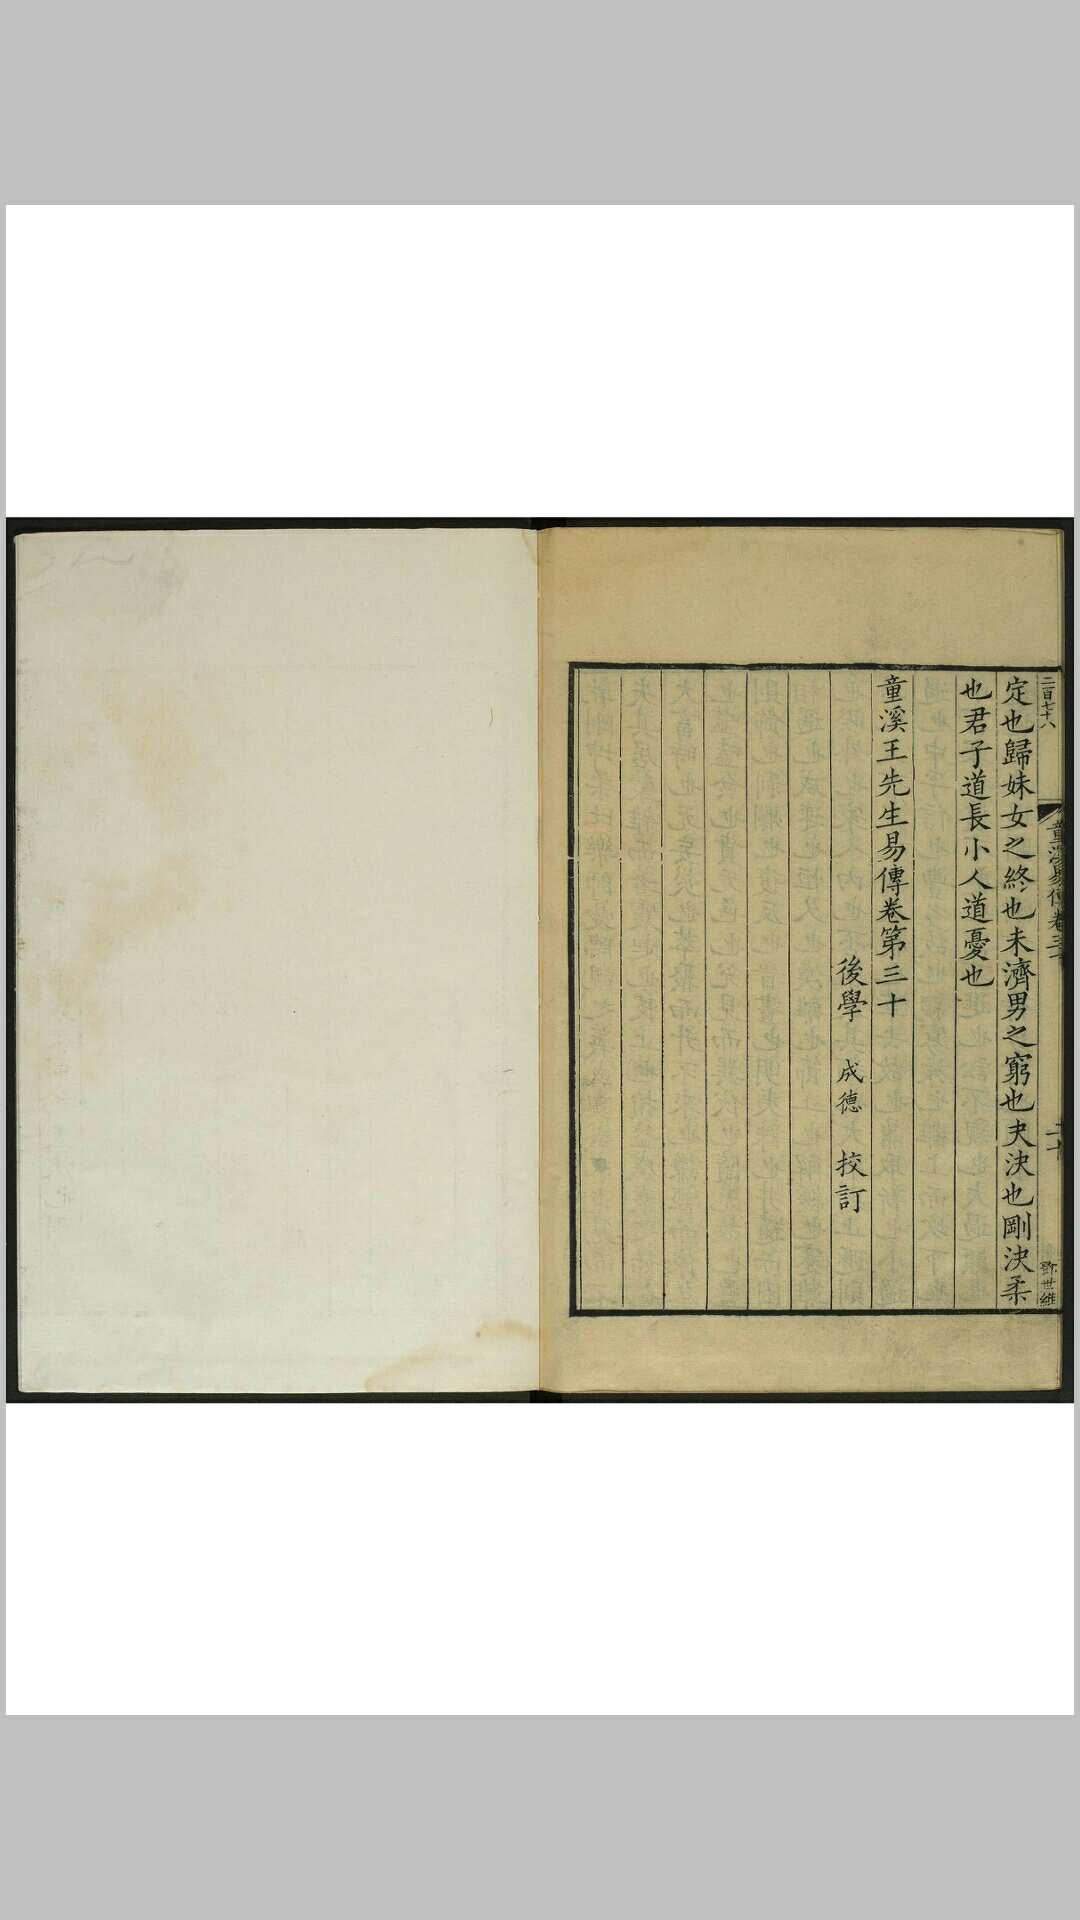 二百七十八
童溪易傳卷三十
二十
鄧世維
定也歸妹女之終也未濟男之窮也夬決也剛決柔
也君子道長小人道憂也
童溪王先生易傳卷第三十
後學 成德 校訂